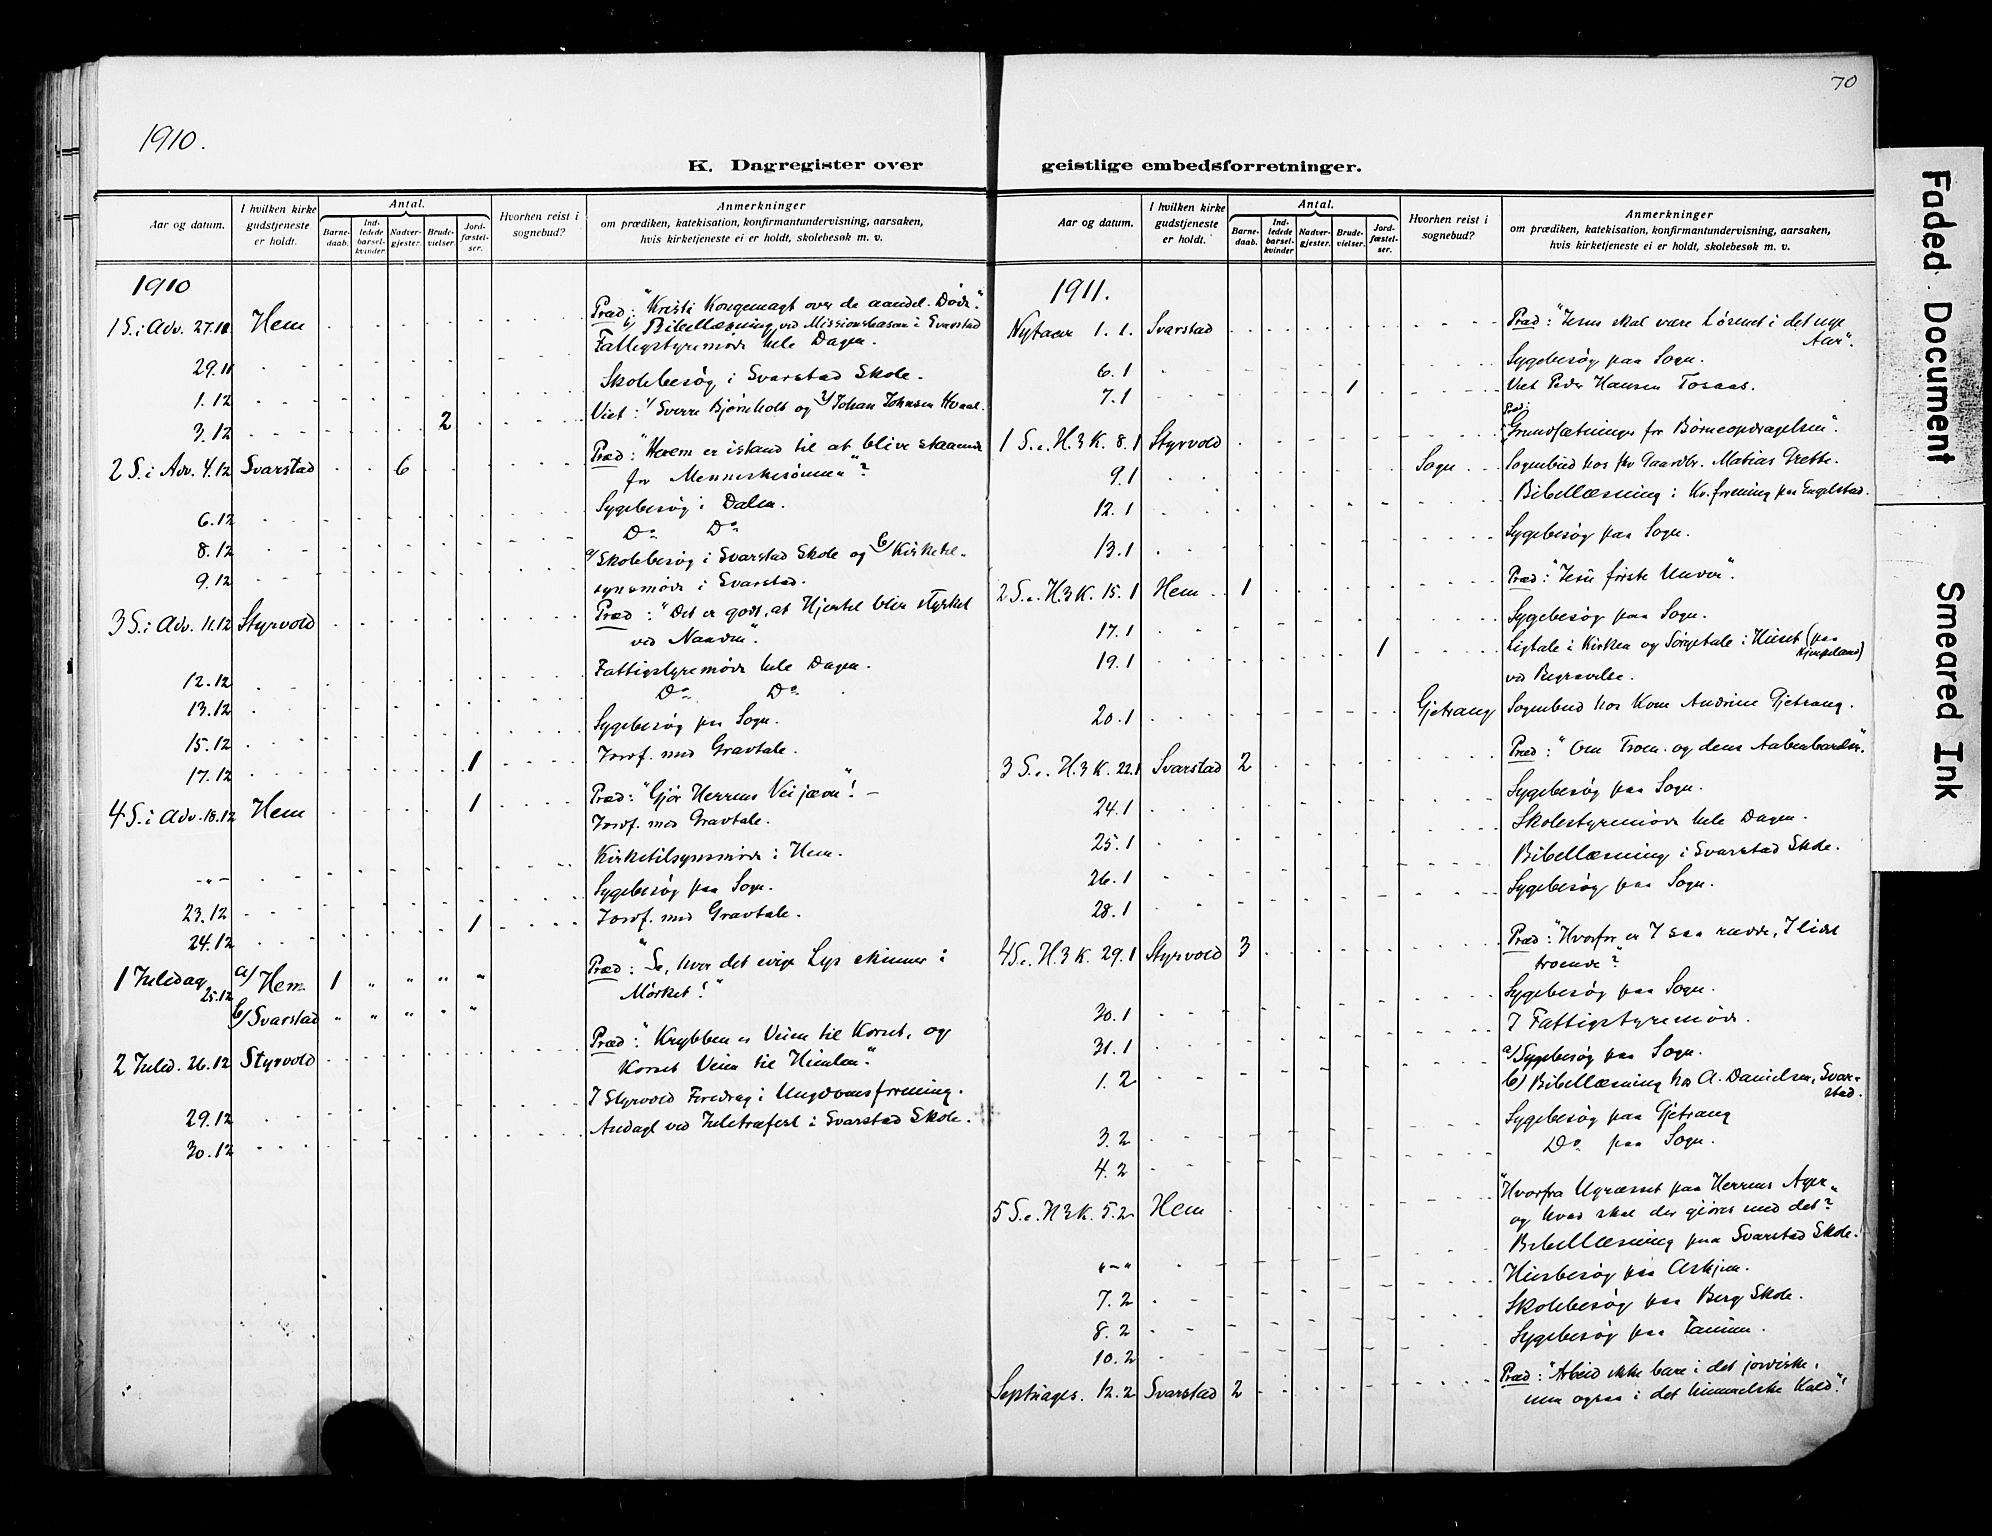 70
1910.
K. Dagregister over geistlige embedsforretninger.
Aar og datum.
I hvilken kirke gudstjeneste er holdt.
Antal.
Barnedaab.
Indledede barselkvinder.
Nadvergjester.
Brudevielser.
Jordfæstelser.
Hvorhen reist i sognebud?
Anmerkninger
om prædiken, katekisation, konfirmantundervisning, aarsaken,
hvis kirketjeneste ei er holdt, skolebesøk m. v.
1910
1 S. i Adv. 27.11 Hem Præd: "Kristi Kongemagt over de aandel. Døde."
b/ Bibellæsning ved Missionsbasar i Svarstad
29.11 Fattigstyremøde hele Dagen.
1.12 Skolebesøg i Svarstad Skole.
3.12 2 Viet: 1/ Sverre Bjørnholt og 2/ Johan Johnsen Hvaal.
2 S. i Adv. 4.12 Svarstad 6 Præd: "Hvem er istand til at blive staaende
for Menneskesønnen"?
6.12 Sygebesøg i Dalen.
8.12 Do Do
9.12 a/ Skolebesøg i Svarstad Skole og b/ Kirketil-
synsmøde i Svarstad.
3 S. i Adv. 11.12 Styrvold Præd: "Det er godt, at Hjertet blir styrket
ved Naaden".
12.12 Fattigstyremøde hele Dagen.
13.12 Do Do
15.12 Sygebesøg paa Sogn.
17.12 1 Jordf. med Gravtale.
4 S. i Adv. 18.12 Hem 1 Præd: "Gjør Herrens Vei jævn"! –
Jordf. med Gravtale.
-"- Kirketilsynsmøde i Hem.
23.12 Sygebesøg paa Sogn.
24.12 1 Jordf. med Gravtale.
1 Juledag 25.12 a/ Hem 1 " " " " Præd: "Se, hvor det evige Lys skinner i
Mørket!"
b/ Svarstad " " " " "
2 Juled. 26.12 Styrvold Præd: "Krybben er Veien til Korset, og
Korset Veien til Himlen".
29.12 I Styrvold Foredrag i Ungdomsforening.
30.12 Andagt ved Juletræfest i Svarstad Skole.
Aar og datum.
I hvilken kirke gudstjeneste er holdt.
Antal.
Barnedaab.
Indledede barselkvinder
Nadvergjester.
Brudevielser.
Jordfæstelser.
Hvorhen reist i sognebud?
Anmerkninger
om prædiken, katekisation, konfirmantundervisning, aarsaken,
hvis kirketjeneste ei er holdt, skolebesøk m. v.
1911.
Nytaar 1.1. Svarstad Præd: "Jesus skal være Løsenet i det nye
Aar".
6.1 Sygebesøg paa Sogn.
7.1 1 Viet Peder Hansen Tosaas.
1 S. e. H. 3 K. 8.1 Styrvold Præd: "Grundsætninger for Børneopdragelsen".
9.1 Sogn Sognebud hos fhv. Gaardbr. Matias Grette.
12.1 Bibellæsning i Kv.forening paa Engelstad.
13.1 Sygebesøg paa Sogn.
2 S. e. H. 3 K. 15.1 Hem 1 Præd: "Jesu første Under".
17.1 Sygebesøg paa Sogn.
19.1 1 Ligtale i Kirken og Sørgetale i Huset (paa
ved Begravelse.
20.1 Gjetrang Sognebud hos Kone Andrine Gjetrang.
3 S. e. H. 3 K. 22.1 Svarstad 2 Præd: "Om Troen og dens Aabenbarelse".
24.1 Sygebesøg paa Sogn.
25.1 Skolestyremøde hele Dagen.
26.1 Bibellæsning i Svarstad Skole.
28.1 Sygebesøg paa Sogn.
4 S. e. H. 3 K. 29.1 Styrvold 3 Præd: "Hvorfor er I saa rædde, I lidet
troende"?
30.1 Sygebesøg paa Sogn.
31.1 I Fattigstyremøde.
1.2 a/ Sygebesøg paa Sogn.
b) Bibellæsning hos A. Danielsen, Svar-
stad.
3.2 Sygebesøg paa Gjetrang
4.2 Do paa Sogn.
5 S. e. H. 3 K. 5.2 Hem "Hvorfra Ugræsset paa Herrens Ager,
og hvad skal der gjøres med det"?
"-" Bibellæsning paa Svarstad Skole.
7.2 Husbesøg paa Askjem.
8.2 Skolebesøg paa Berg Skole.
10.2 Sygebesøg paa
Septuages. 12.2 Svarstad 2 Præd: "Arbeid ikke bare i det jordiske,
men ogsaa i det himmelske Kald"!
Faded Document
Smeared Ink